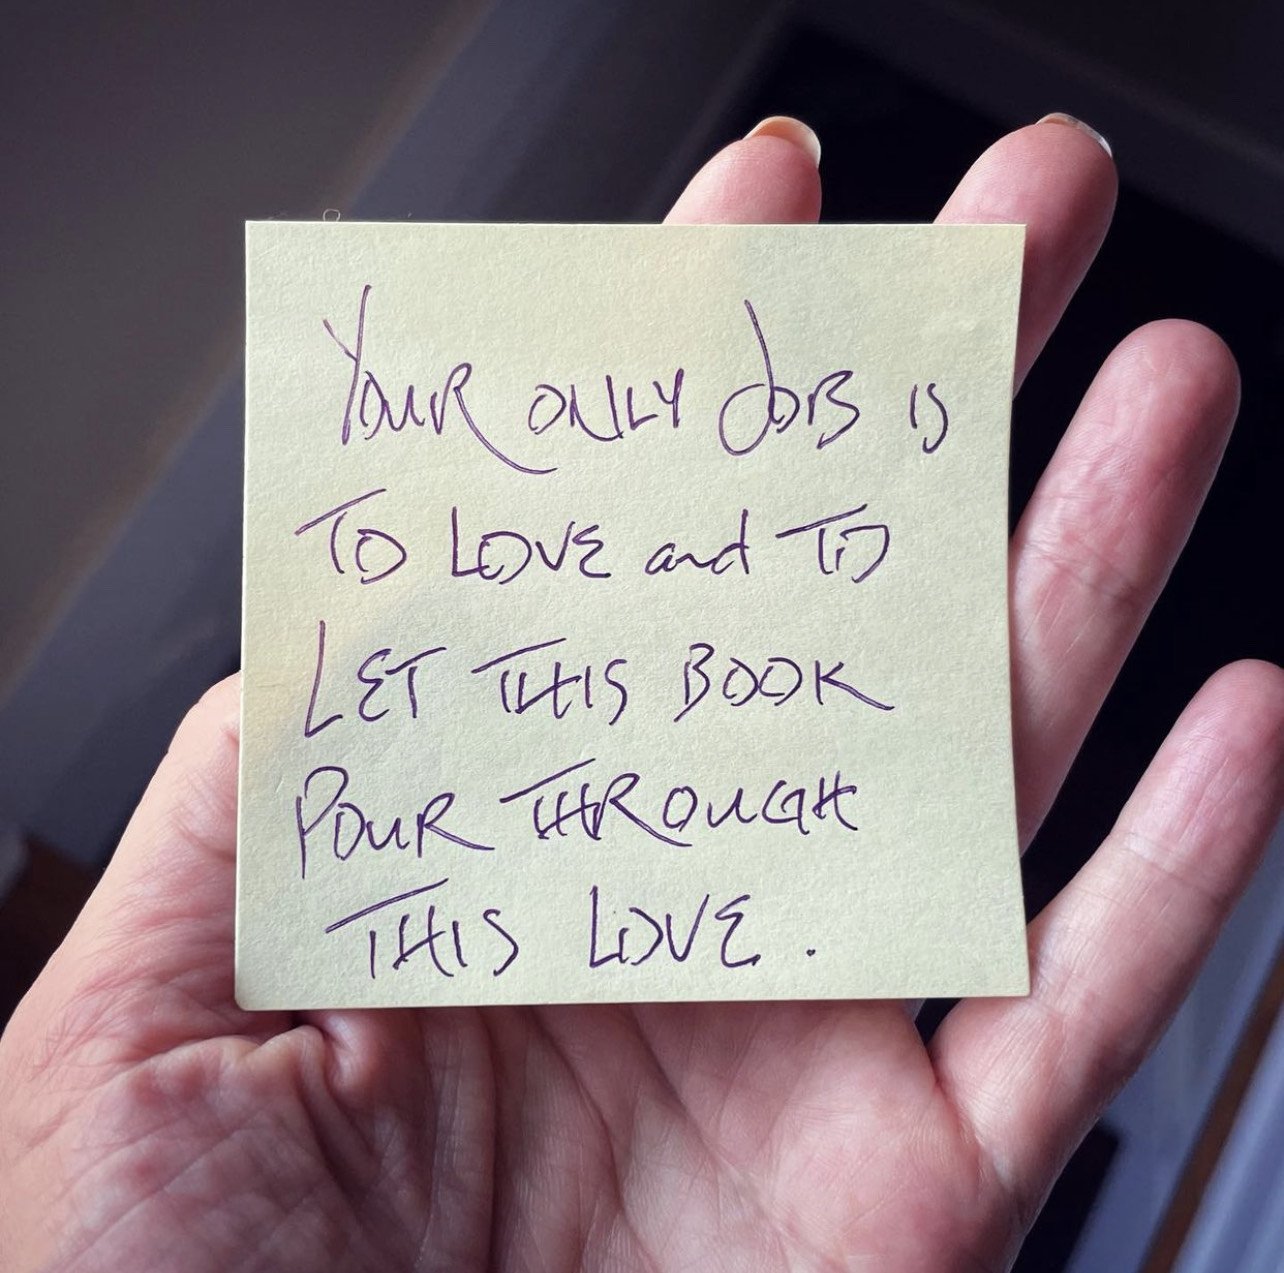 YOUR ONLY JOB IS
TO LOVE and TO
LET THIS BOOK
POUR THROUGH
THIS LOVE.